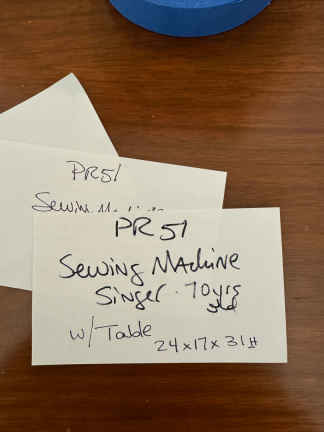 PR51
Sewing Machine
PR 51
Sewing Machine
Singer. 70yrs
old
w/Table
24x17x31H